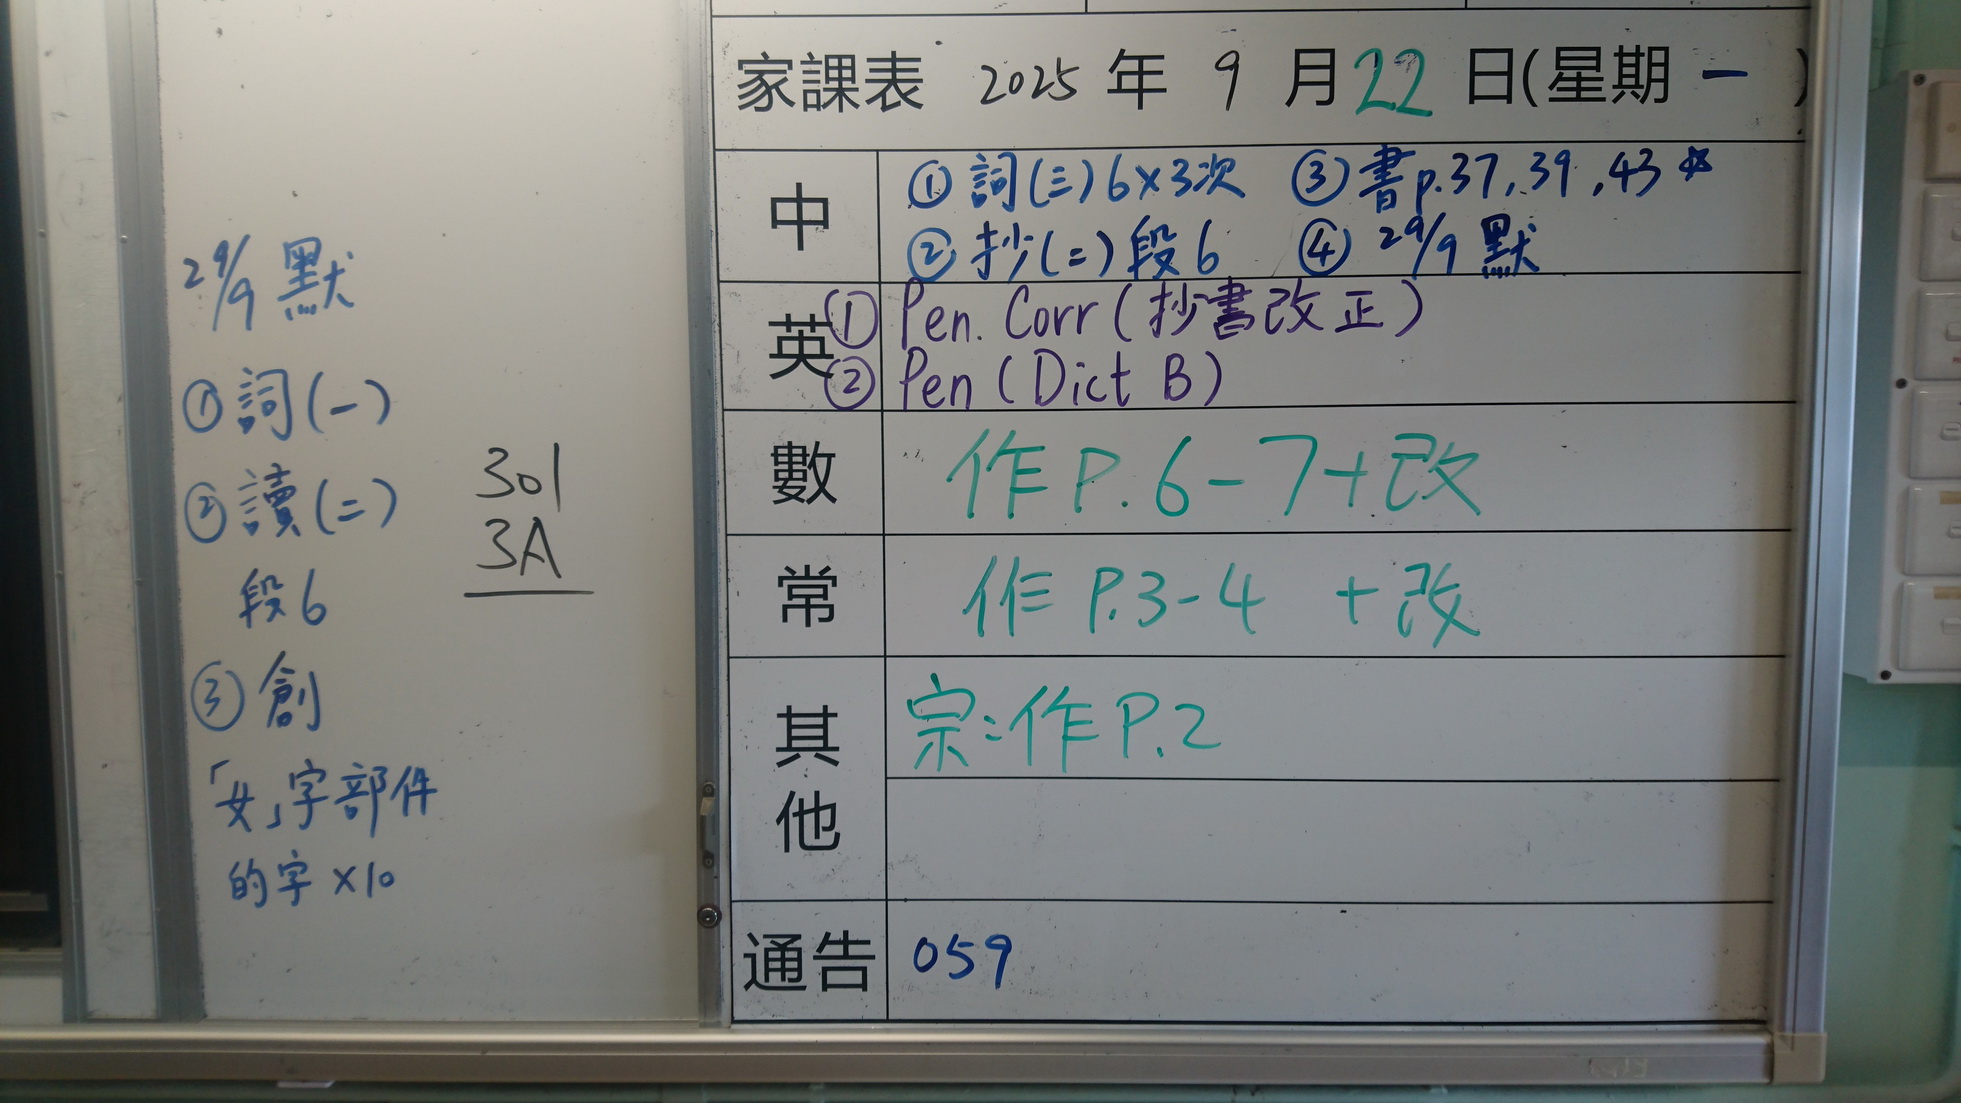 29/9 默
① 詞(一)
② 讀(二)
段6
③ 創
「女」字部件
的字 x10
301
3A
家課表 2025 年 9 月 22 日(星期 一 )
中
① 詞(三) 6x3次 ③ 書p.37,39,43 ☆
② 抄(二) 段6 ④ 29/9 默
英
① Pen. Corr (抄書改正)
② Pen (Dict B)
數 作 P. 6-7+改
常 作 P.3-4 +改
其他 宗:作 P.2
通告 059